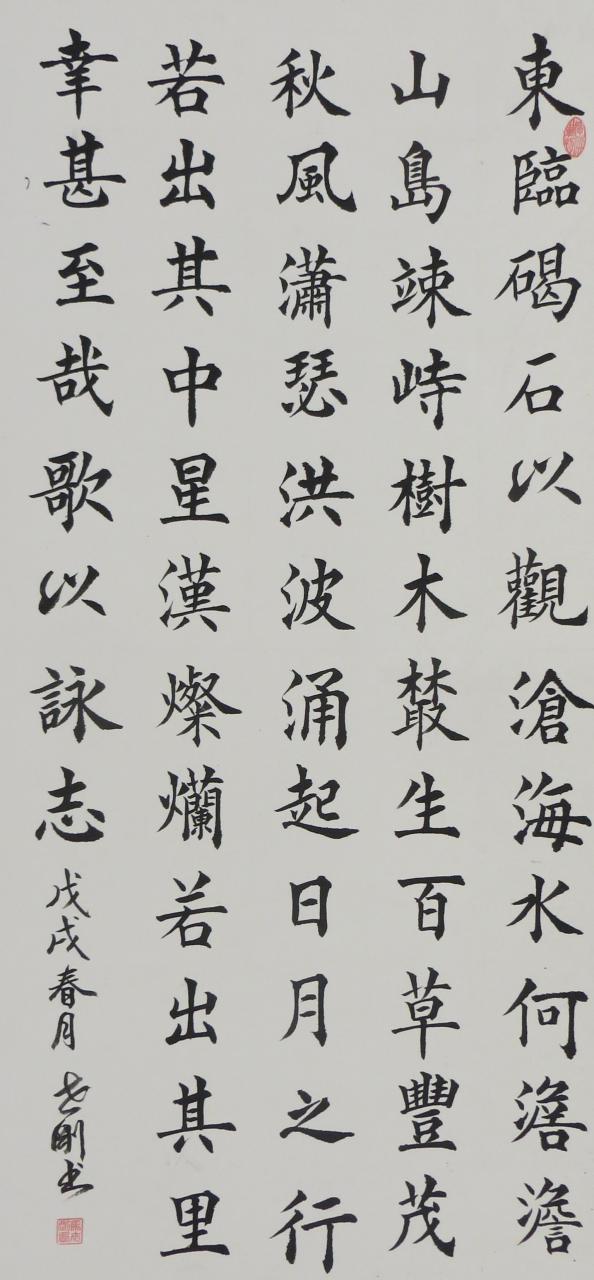 東臨碣石以觀滄海水何澹澹
山島竦峙樹木叢生百草豐茂
秋風瀟瑟洪波涌起日月之行
若出其中星漢燦爛若出其里
幸甚至哉歌以詠志
戊戌春月 世剛书